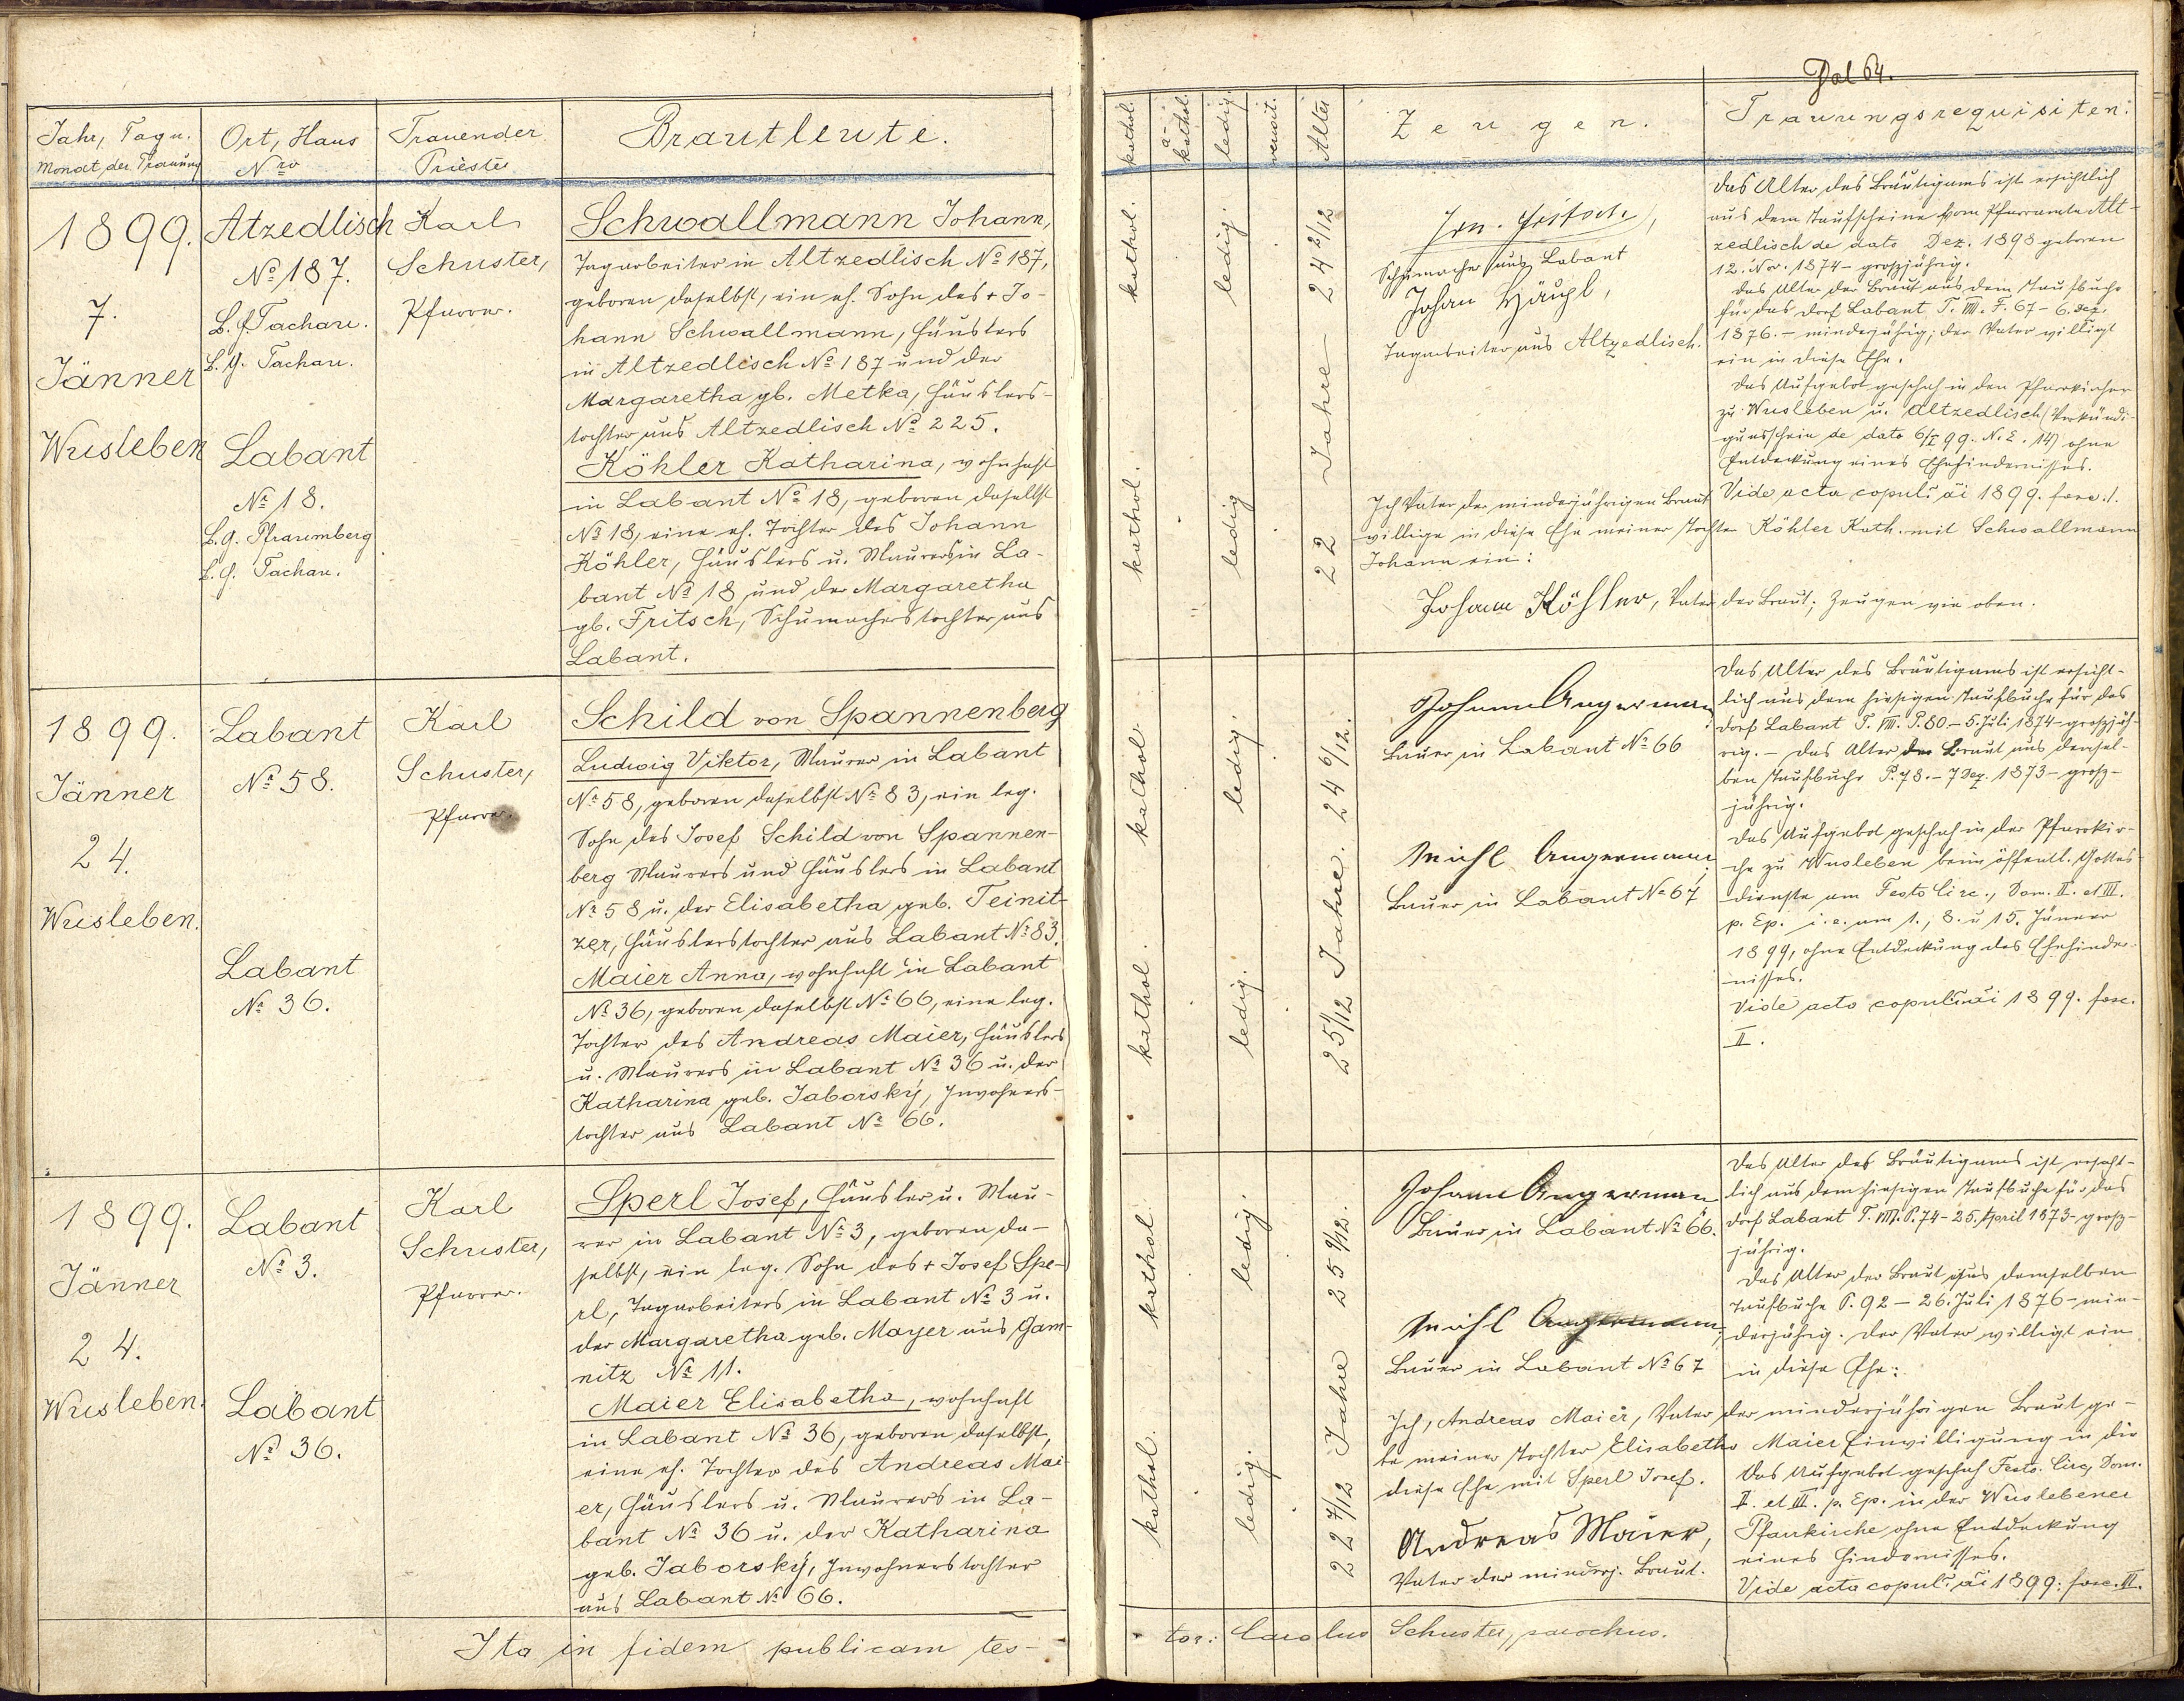 Fol 64.
Jahr, Tag u.
Monat der Trauung
Ort, Haus
Nro
Trauender
Priester
Brautleute.
1899.
7.
Jänner
Wusleben
Atzedlisch
No 187.
B. H. Tachau.
B. G. Tachau.
Labant
No 18.
B. G. Pfraumberg
B. H. Tachau.
Karl
Schuster,
Pfarrer.
Schwallmann Johann,
Tagarbeiter in Altzedlisch No 187,
geboren daselbst, ein eh. Sohn des + Jo-
hann Schwallmann, Häuslers
in Altzedlisch No 187 und der
Margaretha gb. Metka, Häuslers-
tochter aus Altzedlisch No 225.
Köhler Katharina, wohnhaft
in Labant No 18, geboren daselbst
No 18, eine eh. Tochter des Johann
Köhler, Häuslers u. Maurers in La-
bant No 18 und der Margaretha
gb. Fritsch, Schumacherstochter aus
Labant.
1899.
Jänner
24.
Wusleben.
Labant
No 58.
Labant
No 36.
Karl
Schuster,
Pfarrer.
Schild von Spannenberg
Ludwig Viktor, Maurer in Labant
No 58, geboren daselbst No 83, ein leg.
Sohn des Josef Schild von Spannen-
berg Maurers und Häuslers in Labant
No 58 u. der Elisabetha geb. Teinit-
zer, Häuslerstochter aus Labant No 83.
Maier Anna, wohnhaft in Labant
No 36, geboren daselbst No 66, eine leg.
Tochter des Andreas Maier, Häuslers
u. Maurers in Labant No 36 u. der
Katharina geb. Jaborský, Inwohners-
tochter aus Labant No 66.
1899.
Jänner
24.
Wusleben.
Labant
No 3.
Labant
No 36.
Karl
Schuster,
Pfarrer.
Sperl Josef, Häusler u. Mau-
rer in Labant No 3, geboren da-
selbst, ein leg. Sohn des + Josef Spe-
rl, Tagarbeiters in Labant No 3 u.
der Margaretha geb. Mayer aus Gam-
nitz No 11.
Maier Elisabetha, wohnhaft
in Labant No 36, geboren daselbst,
eine eh. Tochter des Andreas Mai-
er, Häuslers u. Maurers in La-
bant No 36 u. der Katharina
geb. Jaborský, Inwohnerstochter
aus Labant No 66.
Ita in fidem publicam tes-
kathol.
a-kathol.
ledig.
verwit.
Alter
Zeugen.
Traungsrequisiten:
kathol.
ledig.
24 2/12
kathol.
ledig
22 Jahre
Schumacher aus Labant
Johan Häupl,
Tagarbeiter aus Altzedlisch.
Das Alter des Bräutigams ist ersichtlich
aus dem Taufscheine vom Pfarramte Alt-
zedlisch de dato Dez. 1898 geboren
12. Nov. 1874 - großjährig.
Das Alter der Braut aus dem Taufbuche
für das Dorf Labant T. VIII. F. 67 - 6. Dez.
1876. - minderjährig; der Vater willigt
ein in diese Ehe.
Das Aufgebot geschah in den Pfarrkirchen
zu Wusleben u. Altzedlisch (Verkündi-
gunsschein de dato 6/I 99. N. E. 14) ohne
Entdeckung eines Ehehindernisses.
Vide acta copul. ai 1899. fasc. 1.
Ich Vater der minderjährigen Braut
willige in diese Ehe meiner Tochter Köhler Kath. mit Schwallmann
Johann ein:
Johann Köhler, Vater der Braut; Zeugen wie oben.
kathol.
ledig.
24 6/12.
kathol.
ledig.
25 1/12 Jahre.
Johann Angerman
Bauer in Labant No 66
Michl Angermann
Bauer in Labant No 67
Das Alter des Bräutigams ist ersicht-
lich aus dem hiesigen Taufbuche für das
Dorf Labant T. VIII. P. 80 - 5. Juli 1874 - großjäh-
rig. - Das Alter der Braut aus densel-
ben Taufbuche P. 78. - 7 Dez. 1873 - groß-
jährig.
Das Aufgebot geschah in der Pfarrkir-
che zu Wusleben beim öffentl. Gottes-
dienste am Festo Circ., Dom. II. et III.
p. Ep. i. e. am 1., 8. u 15. Jänner
1899, ohne Entdeckung des Ehehinder-
nisses.
Vide acto copul. ai 1899. fasc.
II.
kathol.
ledig.
25 9/12.
kathol.
ledig.
22 7/12 Jahre
Johann Angerman
Bauer in Labant No 66.
Michl Angermann,
Bauer in Labant No 67
Das Alter des Bräutigams ist ersicht-
lich aus dem hiesigen Taufbuche für das
Dorf Labant T. VIII. P. 74 - 25. April 1873 - groß-
jährig.
Das Alter der Braut aus demselben
Taufbuche P. 92 - 26. Juli 1876 - min-
derjährig. Der Vater willigt ein
in diese Ehe:
Ich, Andreas Maier, Vater der minderjährigen Braut ge-
be meiner Tochter Elisabetha Maier Einwilligung in die
diese Ehe mit Sperl Josef.
Andreas Maier,
Vater der minderj. Braut.
Das Aufgebot geschah Festo. Circ, Dom.
II. et III. p. Ep. in der Wuslebener
Pfarrkirche ohne Entdeckung
eines Hindernisses.
Vide acta copul. ai 1899. fasc. III.
tor: Carolus Schuster, parochus.